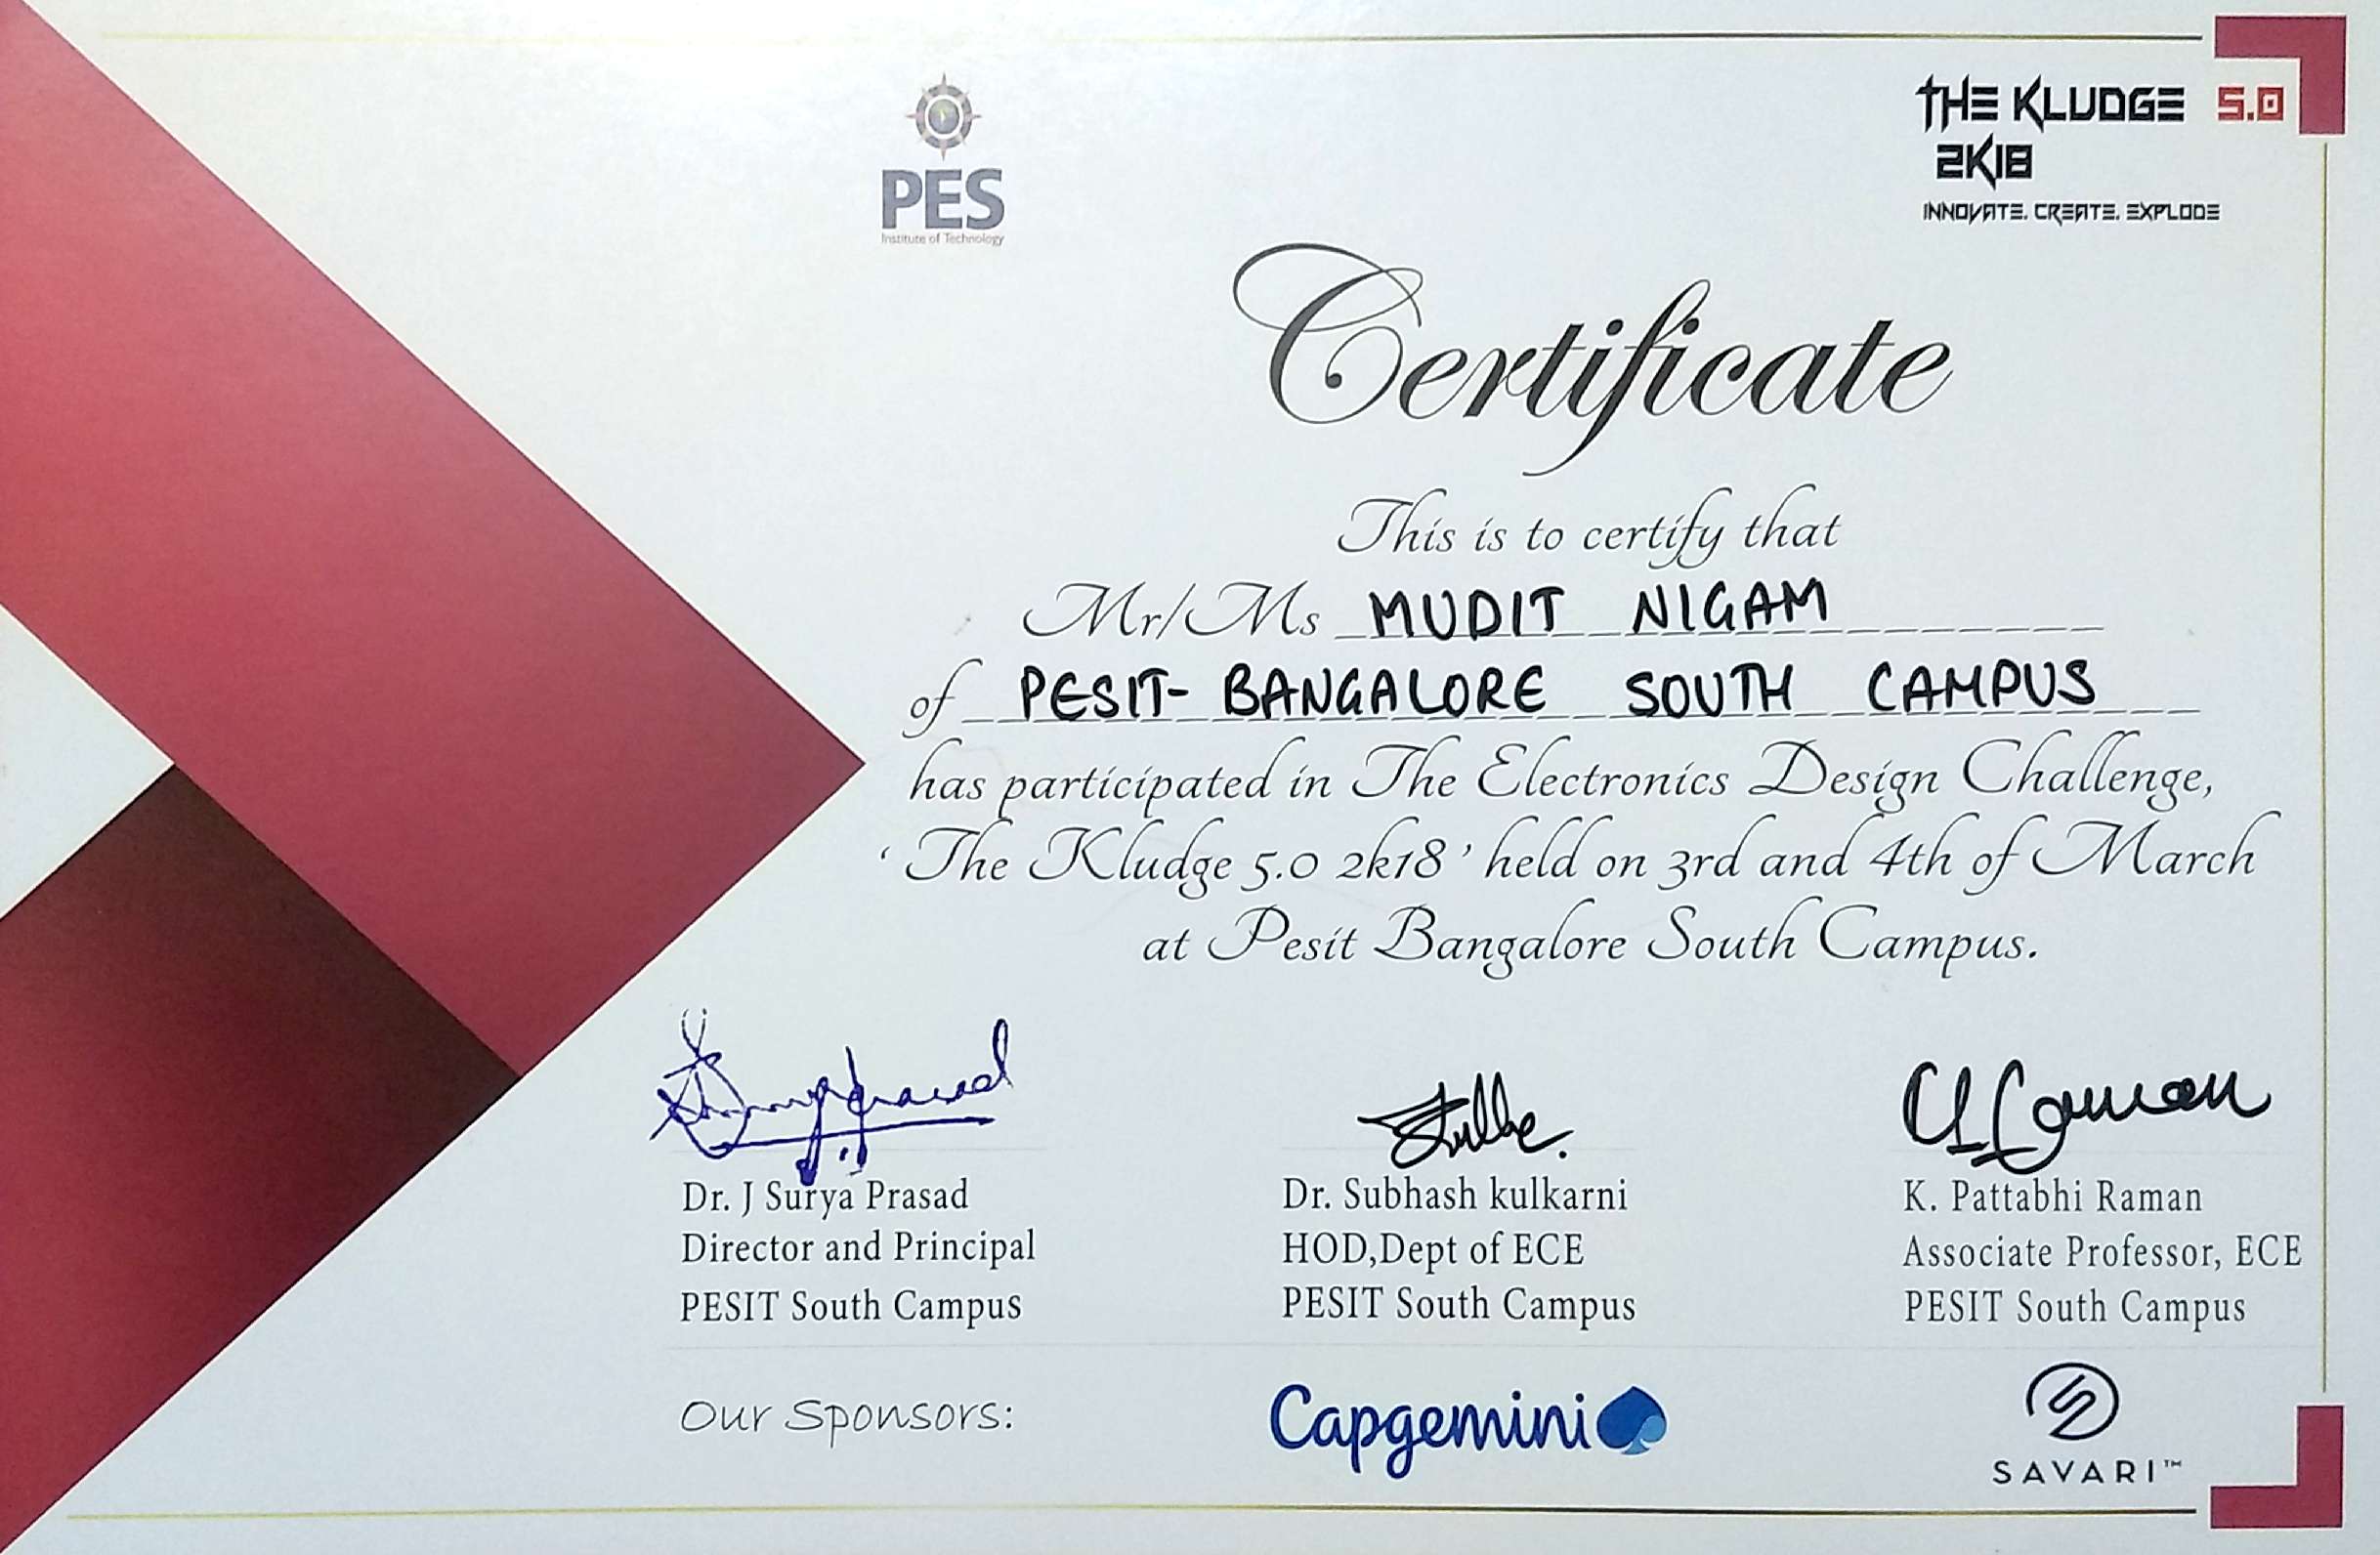 PES
Institute of Technology
THE KLUDGE 5.0
2K18
INNOVATE. CREATE. EXPLODE
Certificate
This is to certify that
Mr/Ms MUDIT NIGAM
of PESIT- BANGALORE SOUTH CAMPUS
has participated in The Electronics Design Challenge,
‘The Kludge 5.0 2k18’ held on 3rd and 4th of March
at Pesit Bangalore South Campus.
Dr. J Surya Prasad
Director and Principal
PESIT South Campus
Dr. Subhash kulkarni
HOD,Dept of ECE
PESIT South Campus
K. Pattabhi Raman
Associate Professor, ECE
PESIT South Campus
Our Sponsors:
Capgemini
SAVARI™